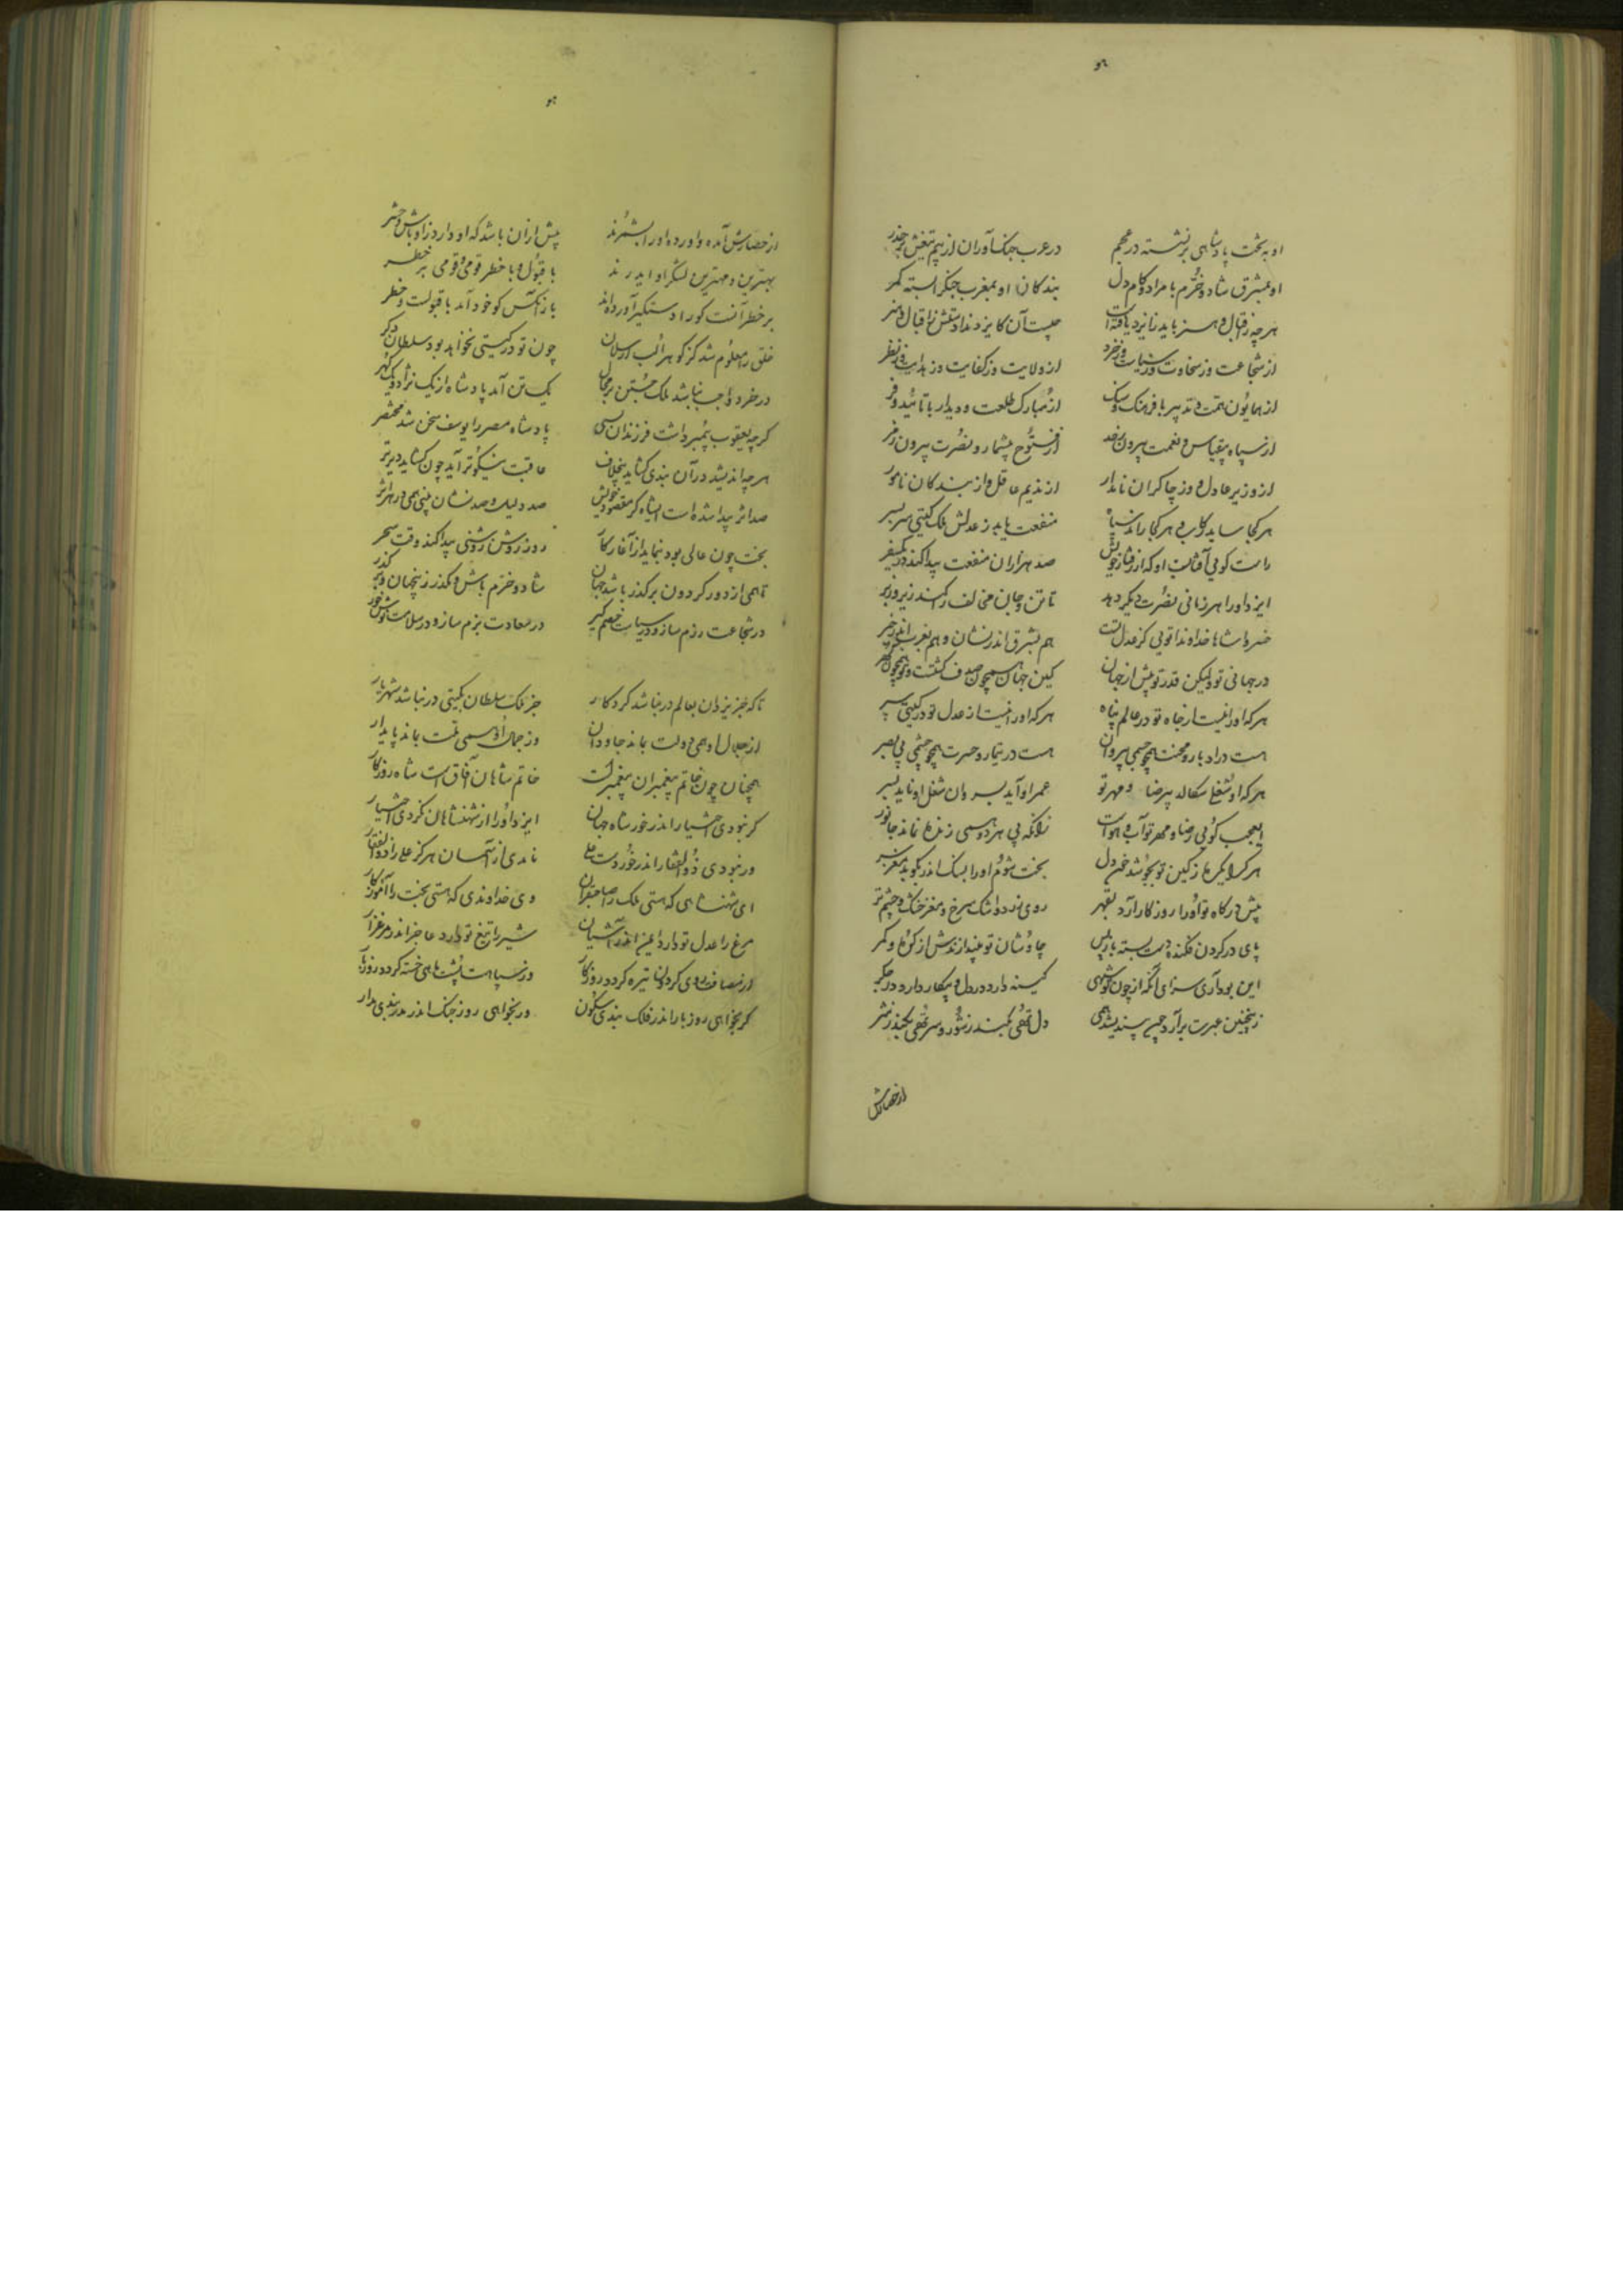 او به تخت پادشاهی برنشسته در عجم
در عرب جنگ آوران از بیم تیغش بر حذر
او بمشرق شاد و خرّم با مراد و کام دل
بندکان او بمغرب جنک را بسته کمر
هر چه ز اقبال و هنر باید ز ایزد یافته است
چیست آن کایزد ندادستش ز اقبال و هنر
از شجاعت وز سخاوت وز سیاست وز خرد
از ولایت وز کفایت وز هدایت وز نظر
از همایون همّت و تدبیر با فرهنک و سنک
از مبارک طلعت و دیدار با تائید و فر
از سپاه بیقیاس و نعمت بیرون ز حد
از فتوح بیشمار و نصرت بیرون ز مر
از وزیر عادل و وز چاکران نامدار
از ندیم عاقل و از بندکان نامور
هر کجا ساید رکاب و هر کجا راند سپاه
منفعت یابد ز عدلش ملک کیتی سر بسر
راست کویی آفتابست او که از رفتار خویش
صد هزاران منفعت پیدا کند در هر سفر
ایزد او را هر زمانی نصرت دیکر دهد
تا تن و جان مخالف را کند زیر و زبر
خسروا شاها خداوندا تویی کز عدل تست
هم بشرق اندر نشان و هم بغرب اندر خبر
در جهانی تو ولیکن قدر تو بیش از جهان
کین جهان همچون صدف کشتست و تو همچون کهر
هر که او را نیست از جاه تو در عالم پناه
هر که او را نیست از عدل تو در کیتی سپر
هست در ادبار و محنت همچو جسمی بی روان
هست در تیمار و حسرت همچو چشمی بی بصر
هر که او شغلی سکالد بی رضا و مهر تو
عمر او آید بسر وان شغل او ناید بسر
ای عجب کویی رضا و مهر تو آب و هواست
زانکه بی هر دو همی زنده نماند جانور
هر کرا یک ره ز کین تو بجوشد خون دل
بخت شوم او را بسنک اندر بکوبد مغز سر
پیش درکاه تو او را روزکار آرد بقهر
روی زرد و اشک سرخ و مغز خشک و چشم تر
پای در کردن فکنده دست بسته باز پس
چاوشان تو بیندازندش از کوه و کمر
این بود آری سزای آنکه از چون تو شهی
کینه دارد در دل و پیکار دارد در جکر
زینچنین عبرت بر آرد چین پسندیده همی
دل تهی کنند ز شور و سر تهی کنند ز شر
از حصارش
از حصارش آمده و آورده او را بشمرند
بیش از آن باشد که او دارد ز اوباش و حشر
بهترین و مهترین لشکر او ایدرند
با قبول و با خطر قومی و قومی بر خطر
بر خطر آنست کو را دستکیر آورده اند
باز آنکس کو خود آمد با قبولست و خطر
خلق را معلوم شد کز کوهر الب ارسلان
چون تو در کیتی نخواهد بود سلطان دکر
در خرد واجب نباشد ملک جستن بر مجال
یک تن آمد پادشاه از یک نژاد و یک کهر
کرچه یعقوب پیمبر داشت فرزندان بسی
پادشاه مصر را یوسف سخن شد مختصر
هر چه اندیشد در آن بندی کشاید بیخلاف
عاقبت نیکوتر آید چون کشاید دیرتر
صد اثر پیدا شده است ای شاه کر مقصود خویش
صد دلیل و صد نشان بینی همی در هر اثر
بخت چون عالی بود بنماید از آغاز کار
روز روشن روشنی پیدا کند وقت سحر
تا همی از دور کردون بر کذر باشد جهان
شاد و خرّم باش و مکذر زینجهان بر کذر
در شجاعت رزم ساز و در سیاست خصم کیر
در سعادت بزم ساز و در سلامت نوش خور
تا که جز یزدان بعالم در نباشد کردکار
جز ملک سلطان بکیتی در نباشد شهریار
از جلال او همی دولت بماند جاودان
وز جمال او همی ملّت بماند پایدار
همچنان چون خاتم پیغمبران پیغمبر است
خاتم شاهان آفاق است شاه روزکار
کر نبودی اختیار اندر خور شاه جهان
ایزد او را از شهنشاهان نکردی اختیار
ور نبودی ذوالفقار اندر خور دست علی
نامدی از آسمان هرکز علی را ذوالفقار
ای شهنشاهی که هستی ملک را صاحبقران
وی خداوندی که هستی بخت را آموزکار
مرغ را عدل تو دارد ایمن اندر آشیان
شیر را تیغ تو دارد عاجز اندر مرغزار
از مصافت روی کردونها تیره کردد روز کار
وز سپاهت پشت ماهی خسته کردد روز بار
کر بخواهی روز بار اندر فلک بندی سکون
ور بخواهی روز جنک اندر مدر بندی مدار